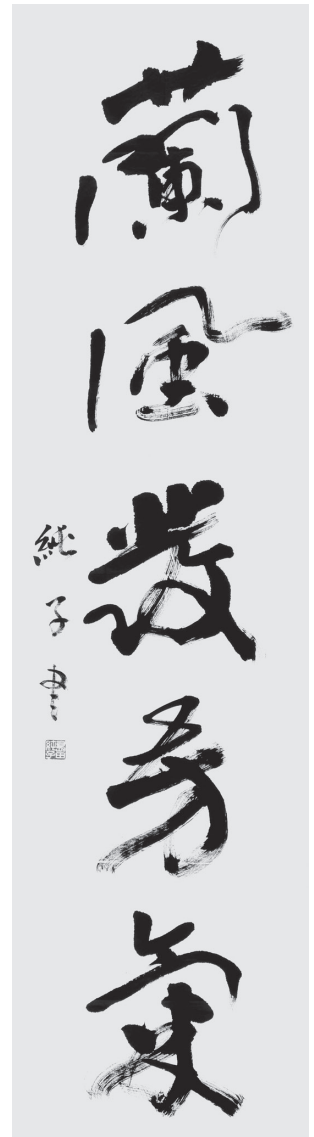 蘭風發芳氣
純子書